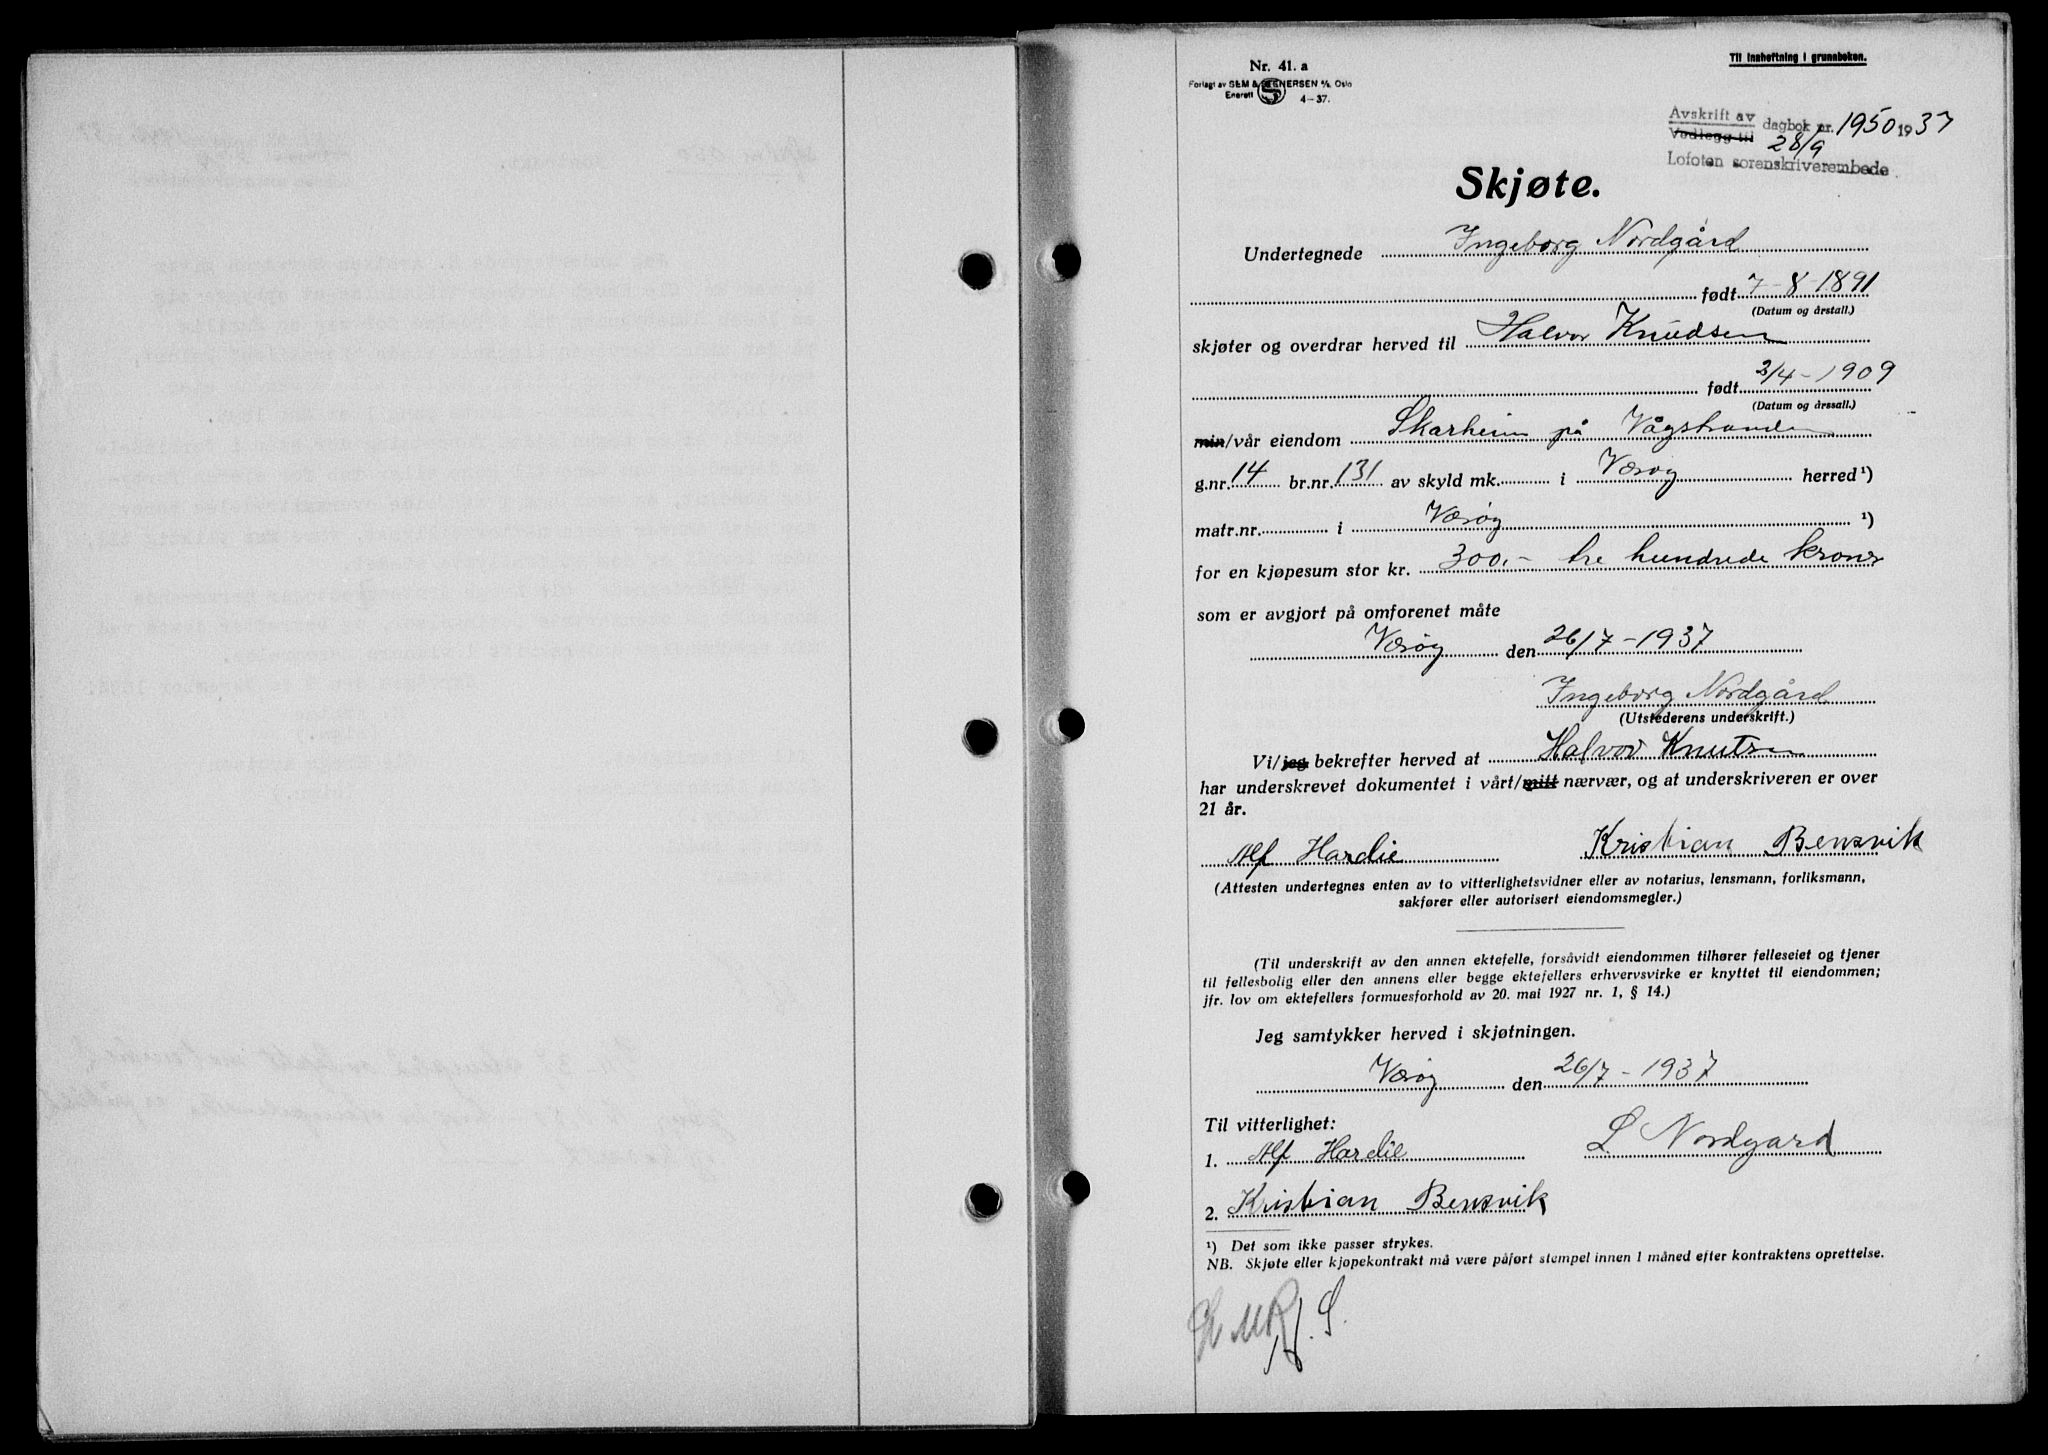 Til innheftning i grunnboken.
Nr. 41. a
Forlagt av SEM & STENERSEN A/S, Oslo
Enerett 4-37.
Avskrift av
Vedlegg til dagbok nr. 1950 1937
28/9
Lofoten sorenskriverembede
Skjøte.
Undertegnede Ingeborg Nordgård
født 7-8-1891
(Datum og årstall.)
skjøter og overdrar herved til Halvor Knudsen
født 2/4-1909
(Datum og årssall.)
min/vår eiendom Skarheim på Vågstranden
g.nr. 14 br.nr. 131 av skyld mk. i Værøy herred ¹)
matr.nr. i Værøy ¹)
for en kjøpesum stor kr. 300,- tre hundrede kroner
som er avgjort på omforenet måte
Værøy den 26/7-1937
Ingeborg Nordgård
(Utstederens underskrift.)
Vi/jeg bekrefter herved at Halvor Knutsen
har underskrevet dokumentet i vårt/mitt nærvær, og at underskriveren er over
21 år.
Alf Hardie Kristian Bensvik
(Attesten undertegnes enten av to vitterlighetsvidner eller av notarius, lensmann, forliksmann,
sakfører eller autorisert eiendomsmegler.)
(Til underskrift av den annen ektefelle, forsåvidt eiendommen tilhører felleseiet og tjener
til fellesbolig eller den annens eller begge ektefellers erhvervsvirke er knyttet til eiendommen;
jfr. lov om ektefellers formuesforhold av 20. mai 1927 nr. 1, § 14.)
Jeg samtykker herved i skjøtningen.
Værøy den 26/7-1937
Til vitterlighet:
1. Alf Hardie L. Nordgard
2. Kristian Bensvik
¹) Det som ikke passer strykes.
NB. Skjøte eller kjøpekontrakt må være påført stempel innen 1 måned efter kontraktens oprettelse.